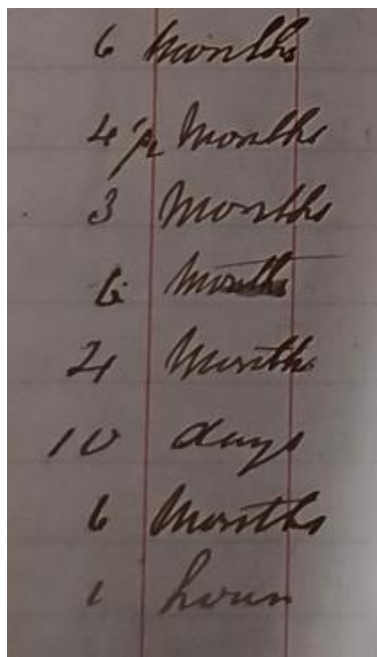 6 Months
4 1/2 Months
3 Months
6 Months
4 Months
10 days
6 Months
1 hour